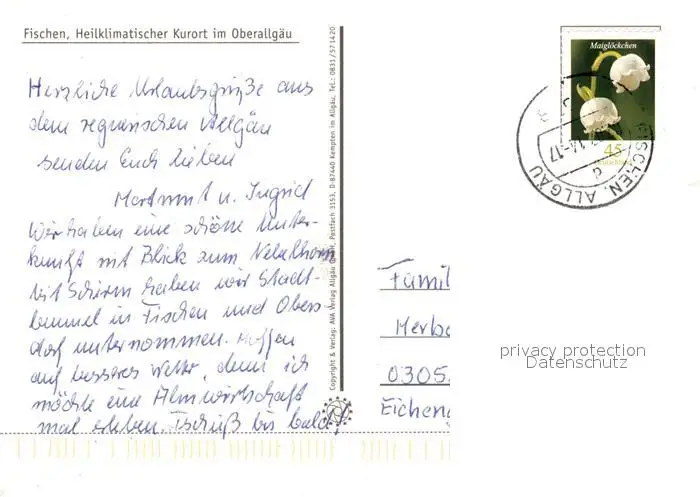 Fischen, Heilklimatischer Kurort im Oberallgäu
Herzliche Urlaubsgrüße aus
dem regnerischen Allgäu
senden Euch lieben
Hartmut u. Ingrid
Wir haben eine schöne Unter-
kunft mit Blick zum Nebelhorn
Mit Schirm haben wir Stadt-
bummel in Fischen und Obers
dorf unternommen. Hoffen
auf besseres Wetter, denn ich
möchte eine Almwirtschaft
mal erleben. Tschüß bis bald!
Copyright & Verlag: AVA Verlag Allgäu GmbH, Postfach 1153, D-87440 Kempten im Allgäu, Tel.: 0831/571420
Maiglöckchen
45
Deutschland
FISCHEN, ALLGÄU
Famil
Herbe
0305
Eichen
privacy protection
Datenschutz